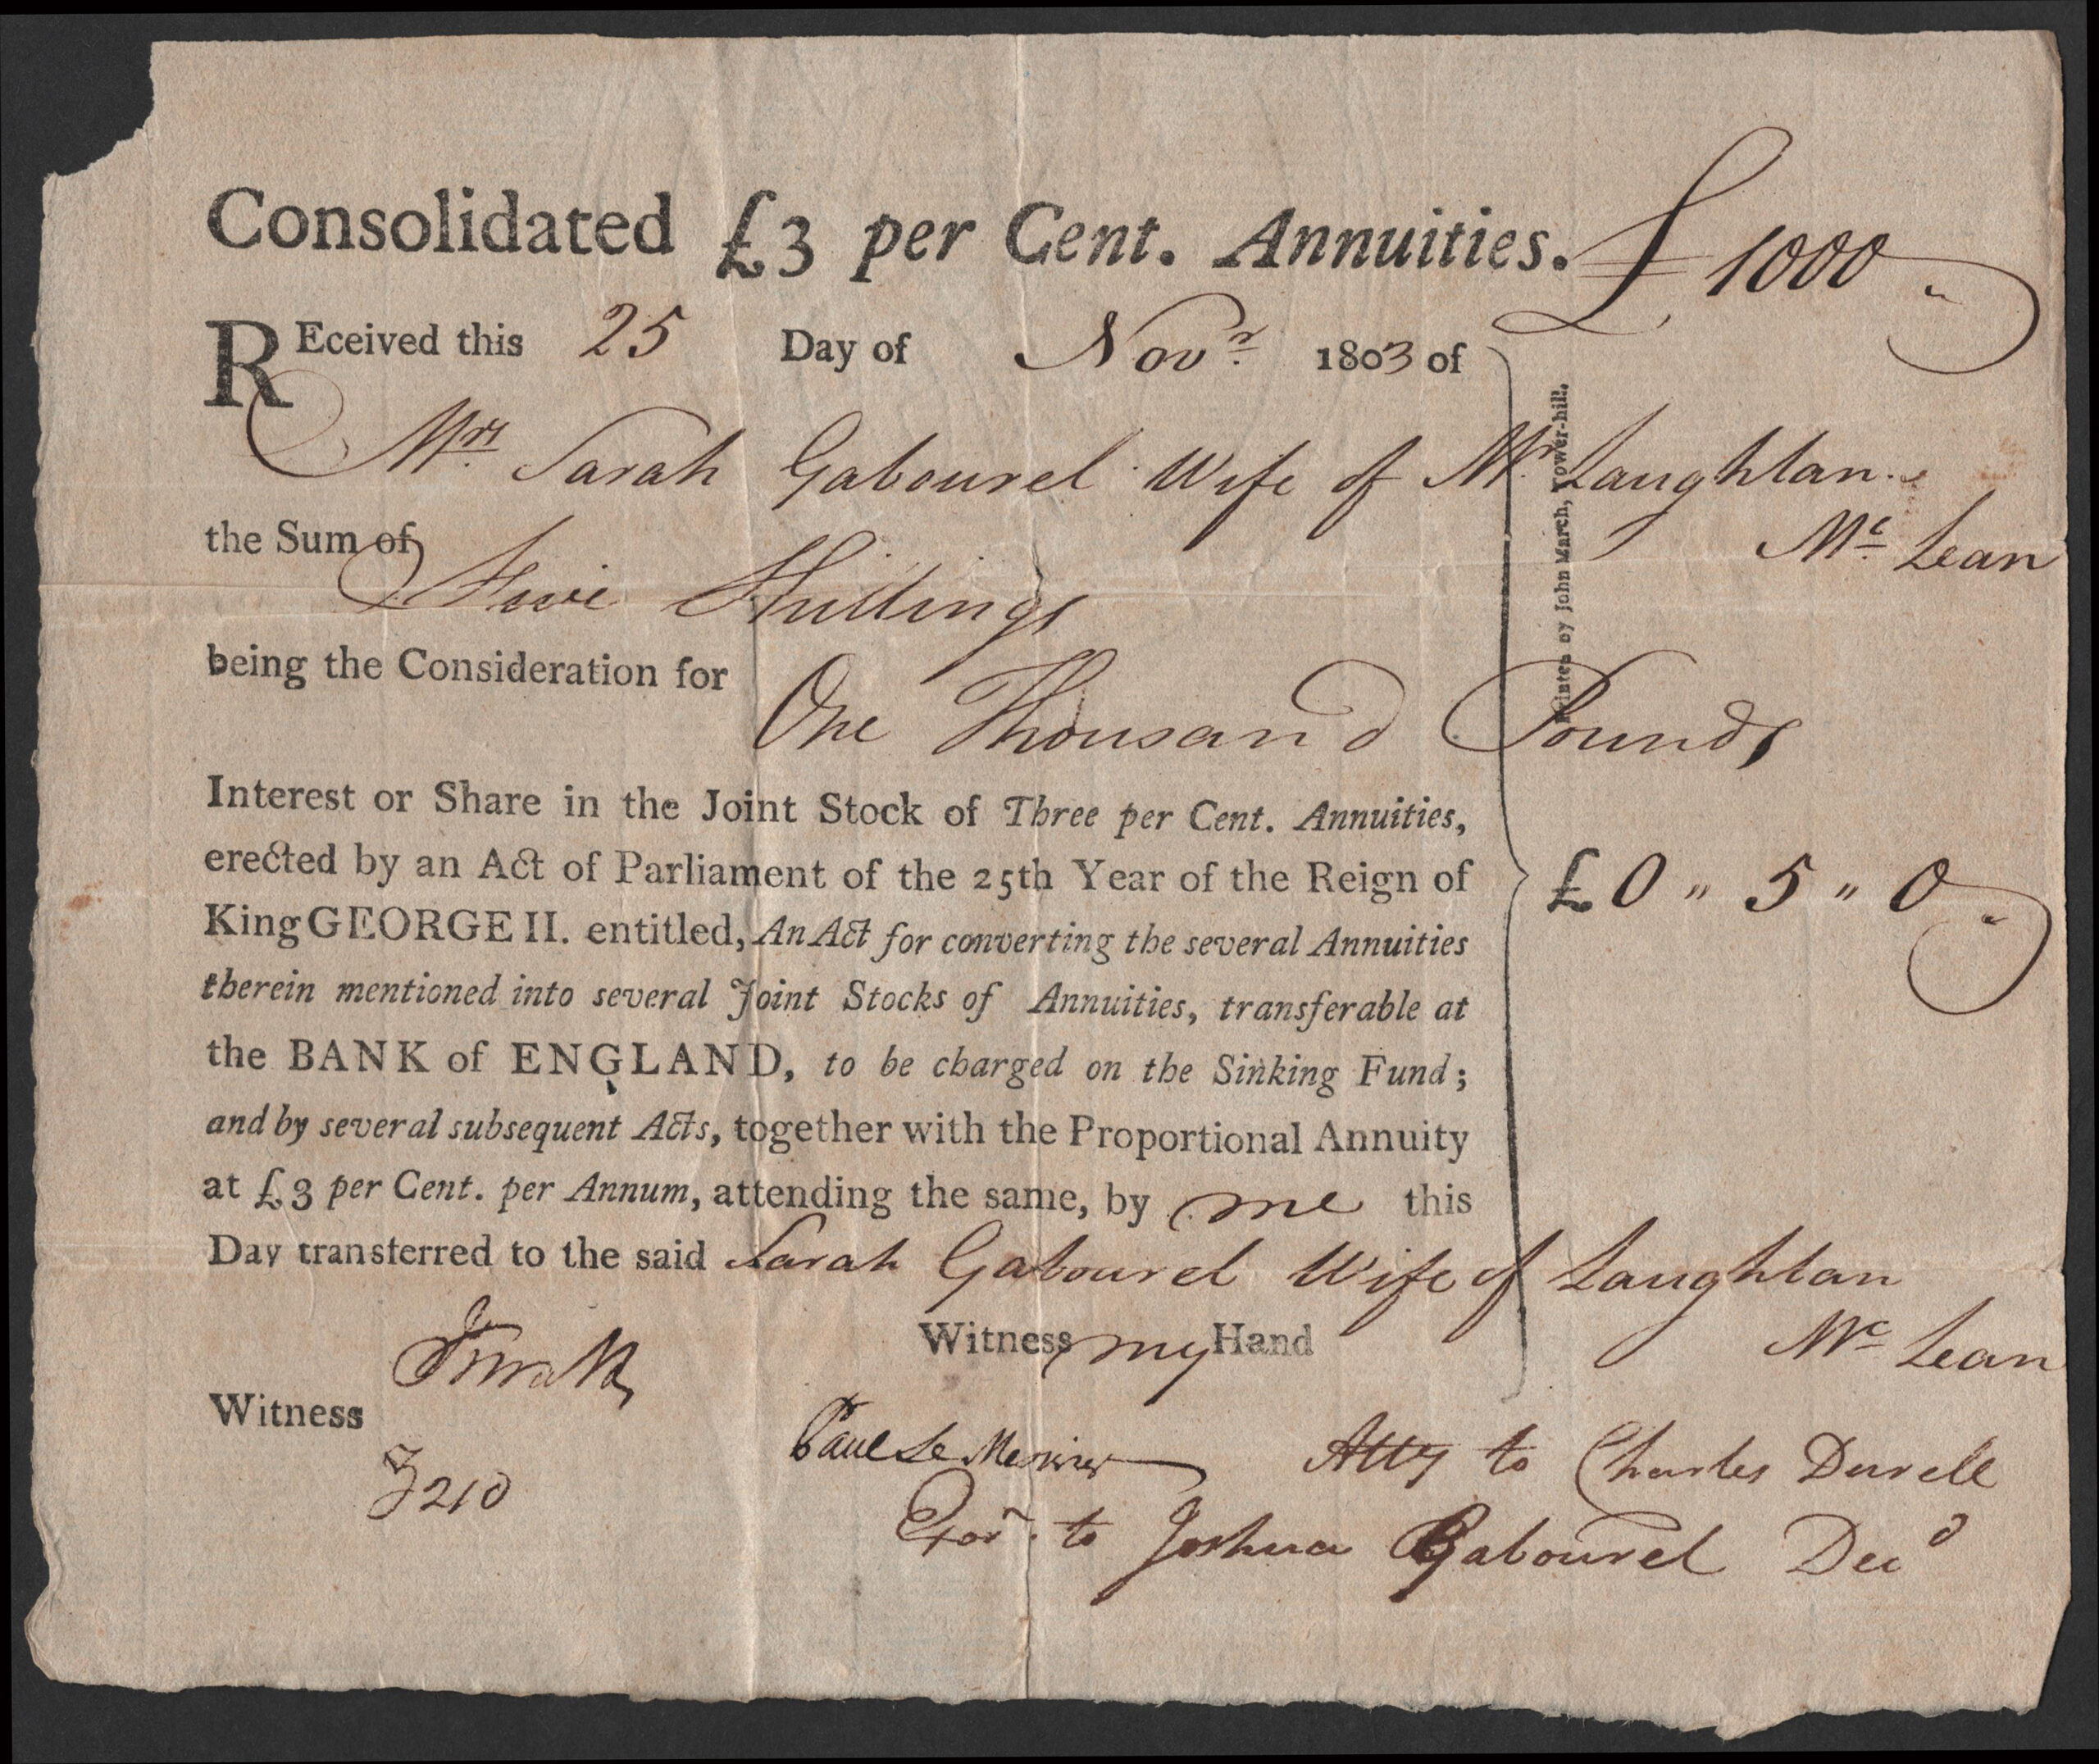 Consolidated £3 per Cent. Annuities. £1000
REceived this 25 Day of Novr 1803 of
Mrs Sarah Gabourel Wife of Mr Laughlan
Mc Lean
the Sum of Five Shillings
being the Consideration for
One Thousand Pounds
Interest or Share in the Joint Stock of Three per Cent. Annuities,
erected by an Act of Parliament of the 25th Year of the Reign of
King GEORGE II. entitled, An Act for converting the several Annuities
therein mentioned into several Joint Stocks of Annuities, transferable at
the BANK of ENGLAND, to be charged on the Sinking Fund;
and by several subsequent Acts, together with the Proportional Annuity
at £3 per Cent. per Annum, attending the same, by me this
Day transferred to the said Sarah Gabourel Wife of Laughlan
Mc Lean
£0 " 5 " 0
Printed by John March, Tower-hill.
Witness my Hand
Witness
Paul Le Mesurier Atty to Charles Durell
Exor to Joshua Gabourel Decd
210